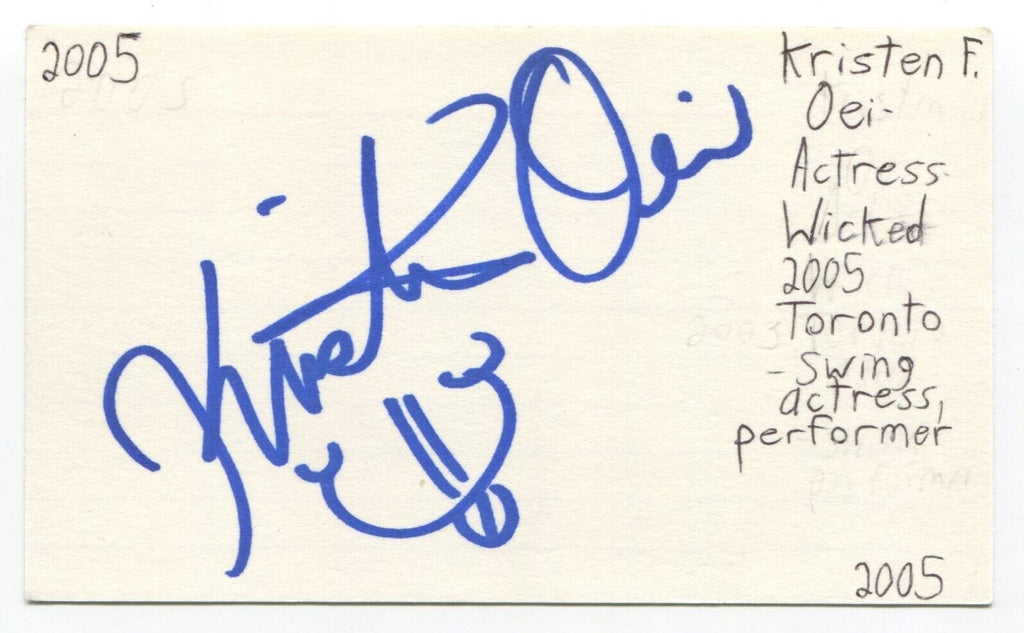 2005
Kristen F.
Oei-
Actress
Wicked
2005
Toronto
- swing
actress,
performer
Kristen Oei
2005